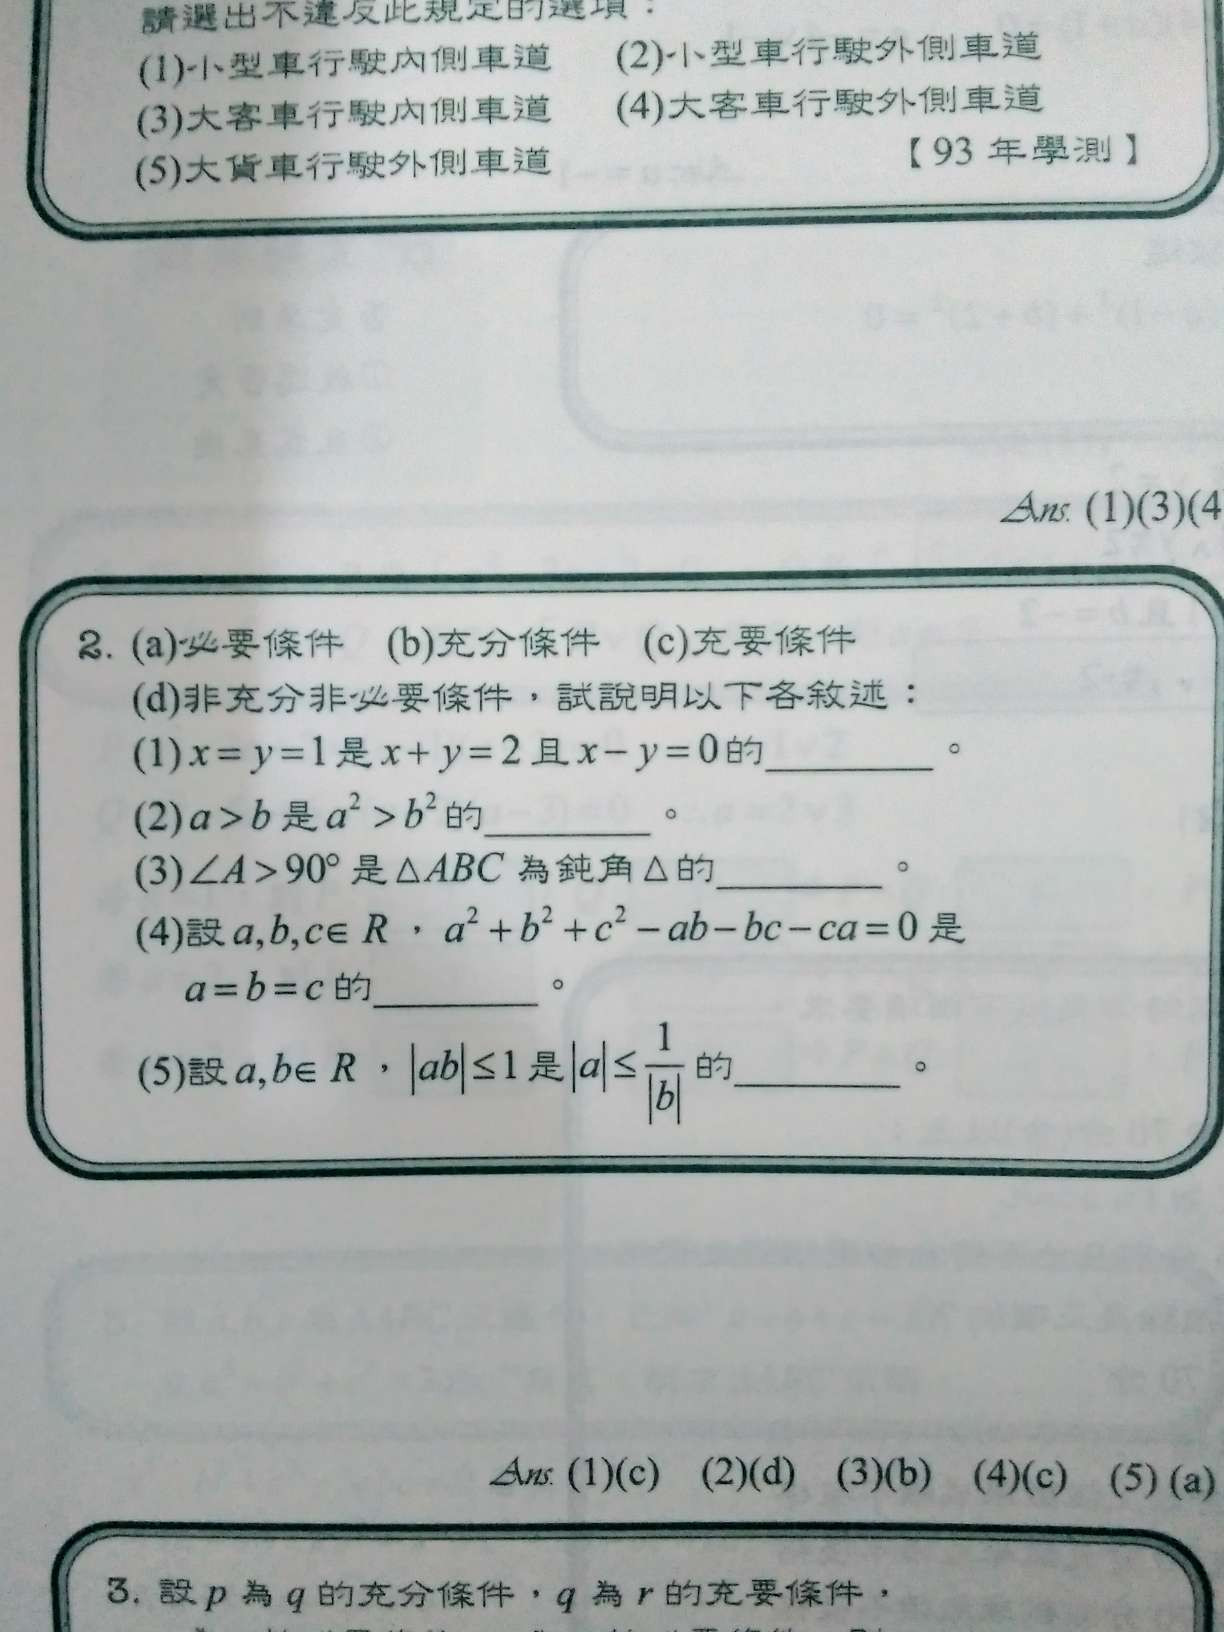 請選出不違反此規定的選項：
(1)小型車行駛內側車道 (2)小型車行駛外側車道
(3)大客車行駛內側車道 (4)大客車行駛外側車道
(5)大貨車行駛外側車道 【93 年學測】
Ans. (1)(3)(4
2. (a)必要條件 (b)充分條件 (c)充要條件
(d)非充分非必要條件，試說明以下各敘述：
(1) x = y = 1 是 x + y = 2 且 x − y = 0 的________。
(2) a > b 是 a² > b² 的________。
(3) ∠A > 90° 是 △ABC 為鈍角△的________。
(4)設 a, b, c ∈ R ， a² + b² + c² − ab − bc − ca = 0 是
a = b = c 的________。
(5)設 a, b ∈ R ， |ab| ≤ 1 是 |a| ≤ 1/|b| 的________。
Ans. (1)(c) (2)(d) (3)(b) (4)(c) (5) (a)
3. 設 p 為 q 的充分條件，q 為 r 的充要條件，